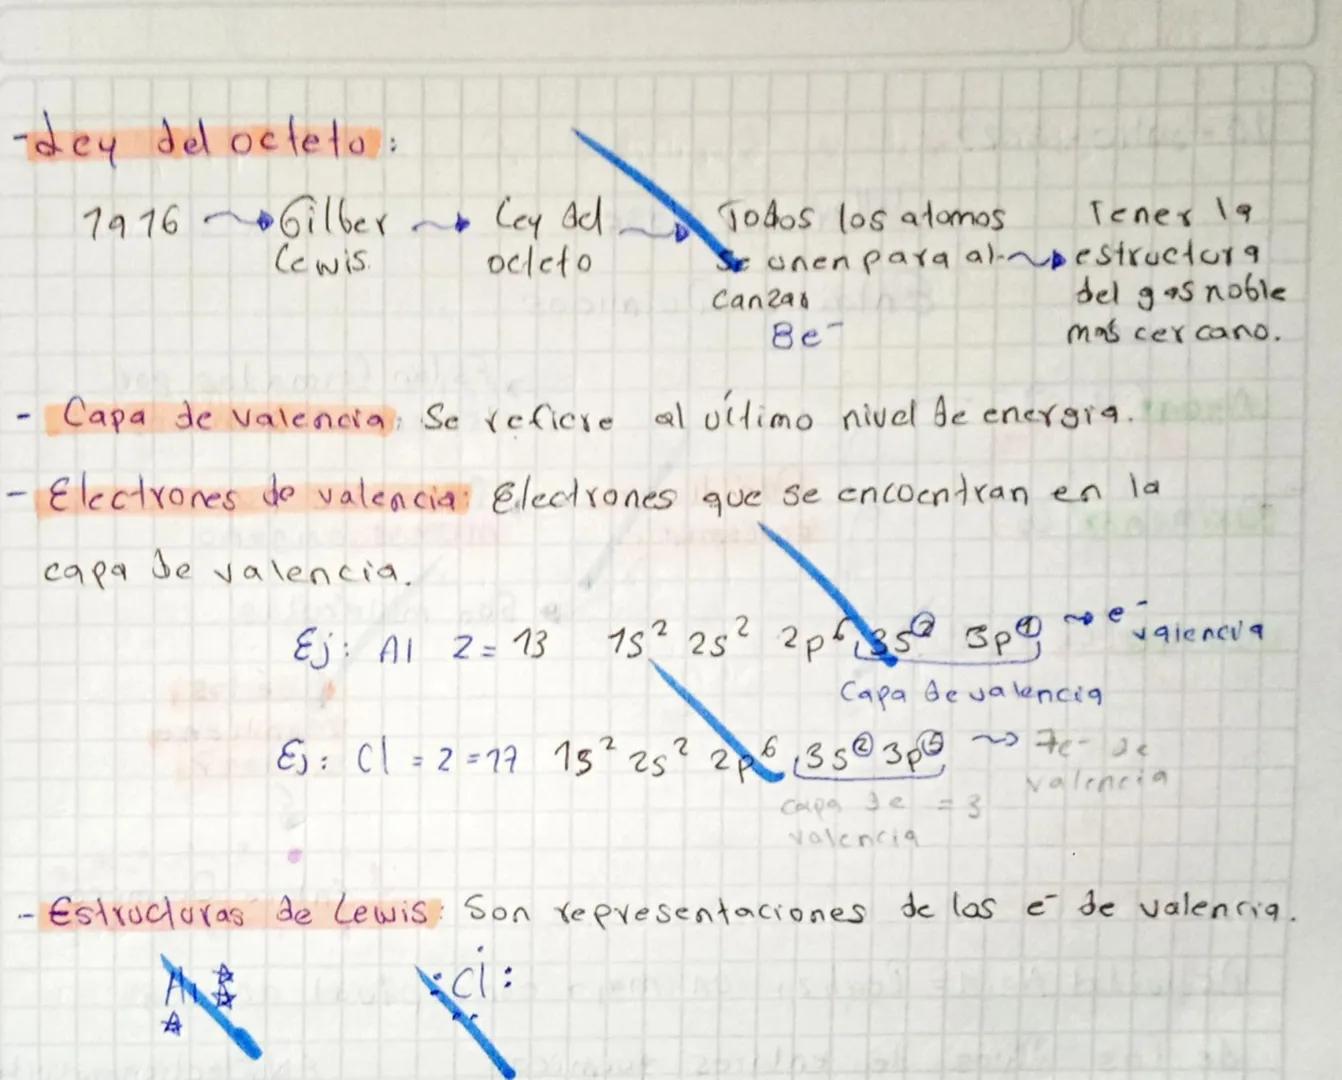 -Ley del octeto:
1916 → Gilber → Ley del → Todos los atomos Tener la
Lewis. octeto se unen para al- → estructura
canzar del gas noble
8e⁻ más cercano.
- Capa de valencia: Se refiere al último nivel de energía.
- Electrones de valencia: Electrones que se encuentran en la
capa de valencia.
Ej: Al Z = 13 1s² 2s² 2p⁶ 3s² 3p¹ → e⁻ valencia
Capa de valencia
Ej: Cl = Z = 17 1s² 2s² 2p⁶ 3s² 3p⁵ → 7e⁻ de
valencia
capa de = 3
valencia
- Estructuras de Lewis: Son representaciones de los e⁻ de valencia.
Al :Cl: